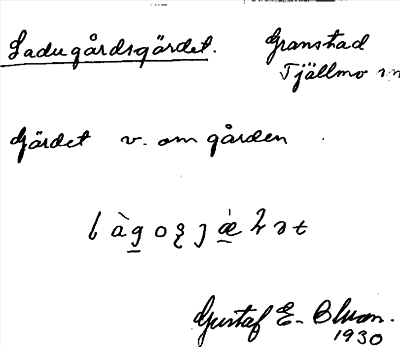 Ladugårdsgärdet. Granstad
Tjällmo sn
Gärdet v. om gården
Gustaf E. Bluom.
1930